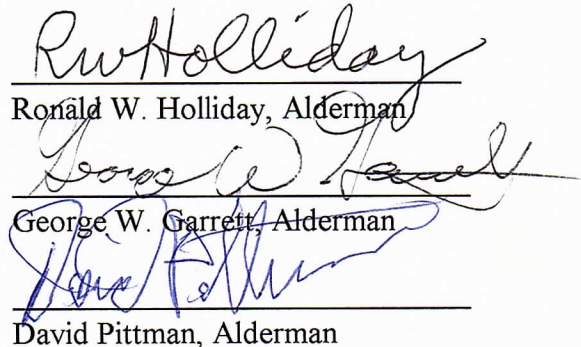 RW Holliday
Ronald W. Holliday, Alderman
George W. Garrett
George W. Garrett, Alderman
David Pittman
David Pittman, Alderman